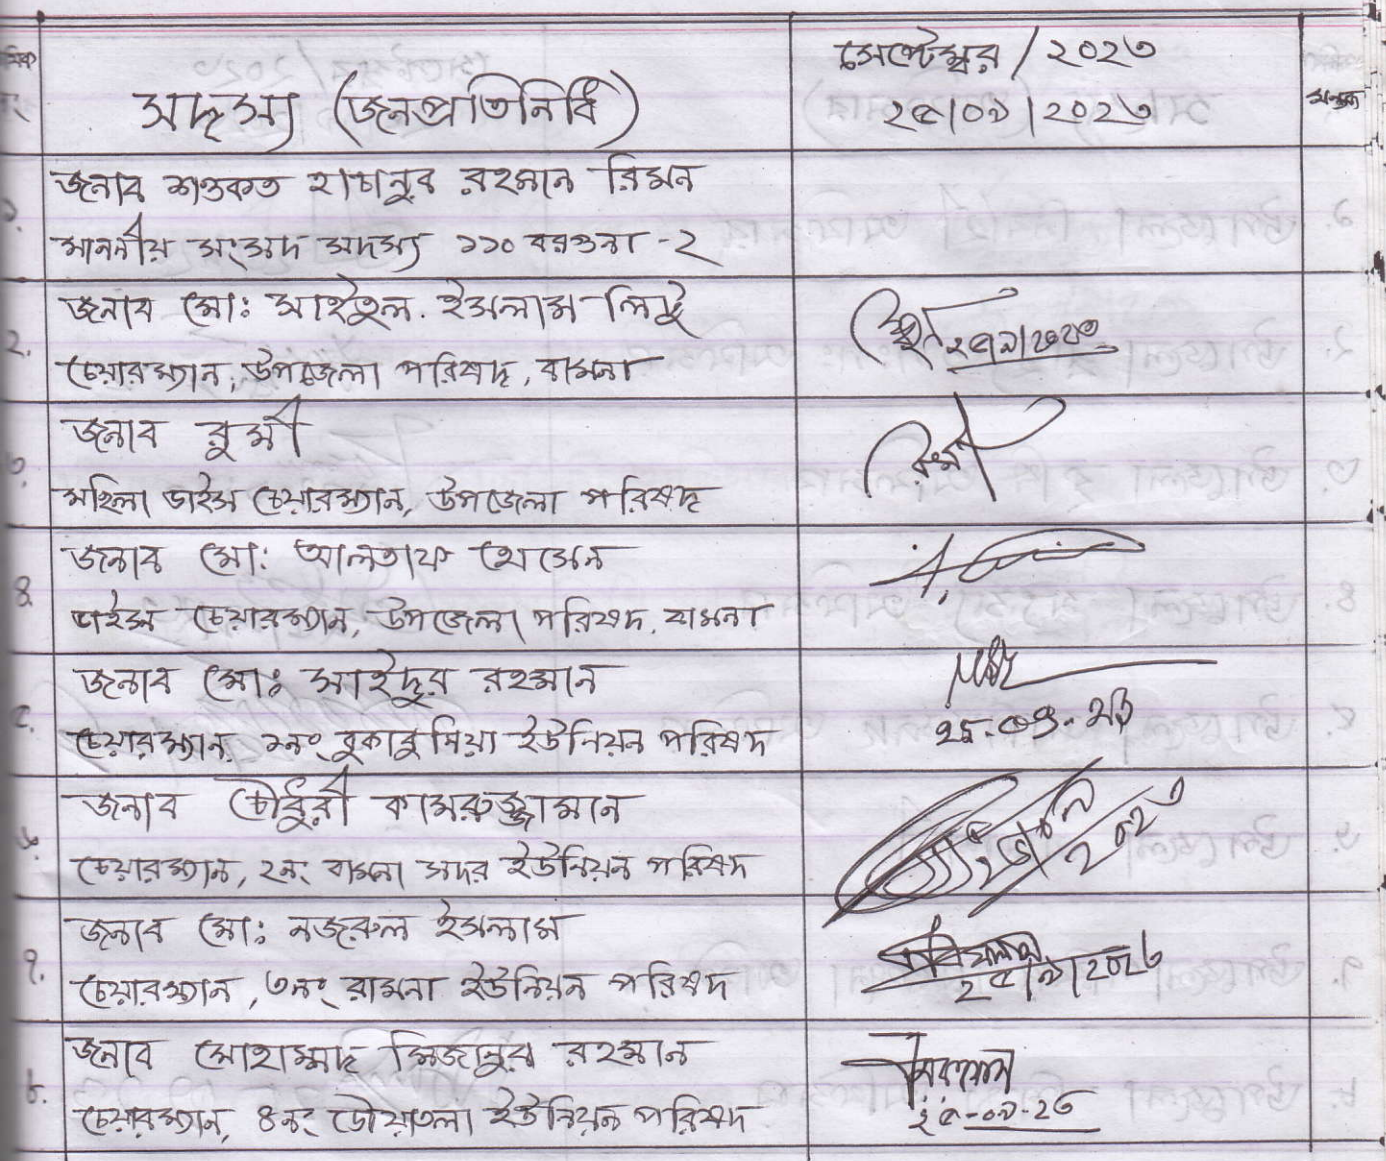 সেপ্টেম্বর / ২০২৩
সদস্য (জনপ্রতিনিধি)
২৫/০৯/২০২৩
মন্তব্য
জনাব শওকত হাচানুর রহমান রিমন
মাননীয় সংসদ সদস্য ১১০ বরগুনা -২
২.
জনাব মো: সাইতুল ইসলাম লিটু
চেয়ারম্যান, উপজেলা পরিষদ, বামনা
জনাব রুমী
মহিলা ভাইস চেয়ারম্যান, উপজেলা পরিষদ
৪.
জনাব মো: আলতাফ হোসেন
ভাইস চেয়ারম্যান, উপজেলা পরিষদ, বামনা
৫.
জনাব মো: সাইদুর রহমান
চেয়ারম্যান, ১নং বুকাবুনিয়া ইউনিয়ন পরিষদ
৬.
জনাব চৌধুরী কামরুজ্জামান
চেয়ারম্যান, ২নং বামনা সদর ইউনিয়ন পরিষদ
২০২৩
৭.
জনাব মো: নজরুল ইসলাম
চেয়ারম্যান, ৩নং রামনা ইউনিয়ন পরিষদ
২৫/৯/২০২৩
৮.
জনাব মোহাম্মদ মিজানুর রহমান
চেয়ারম্যান, ৪নং ডৌয়াতলা ইউনিয়ন পরিষদ
২৫-০৯-২৩